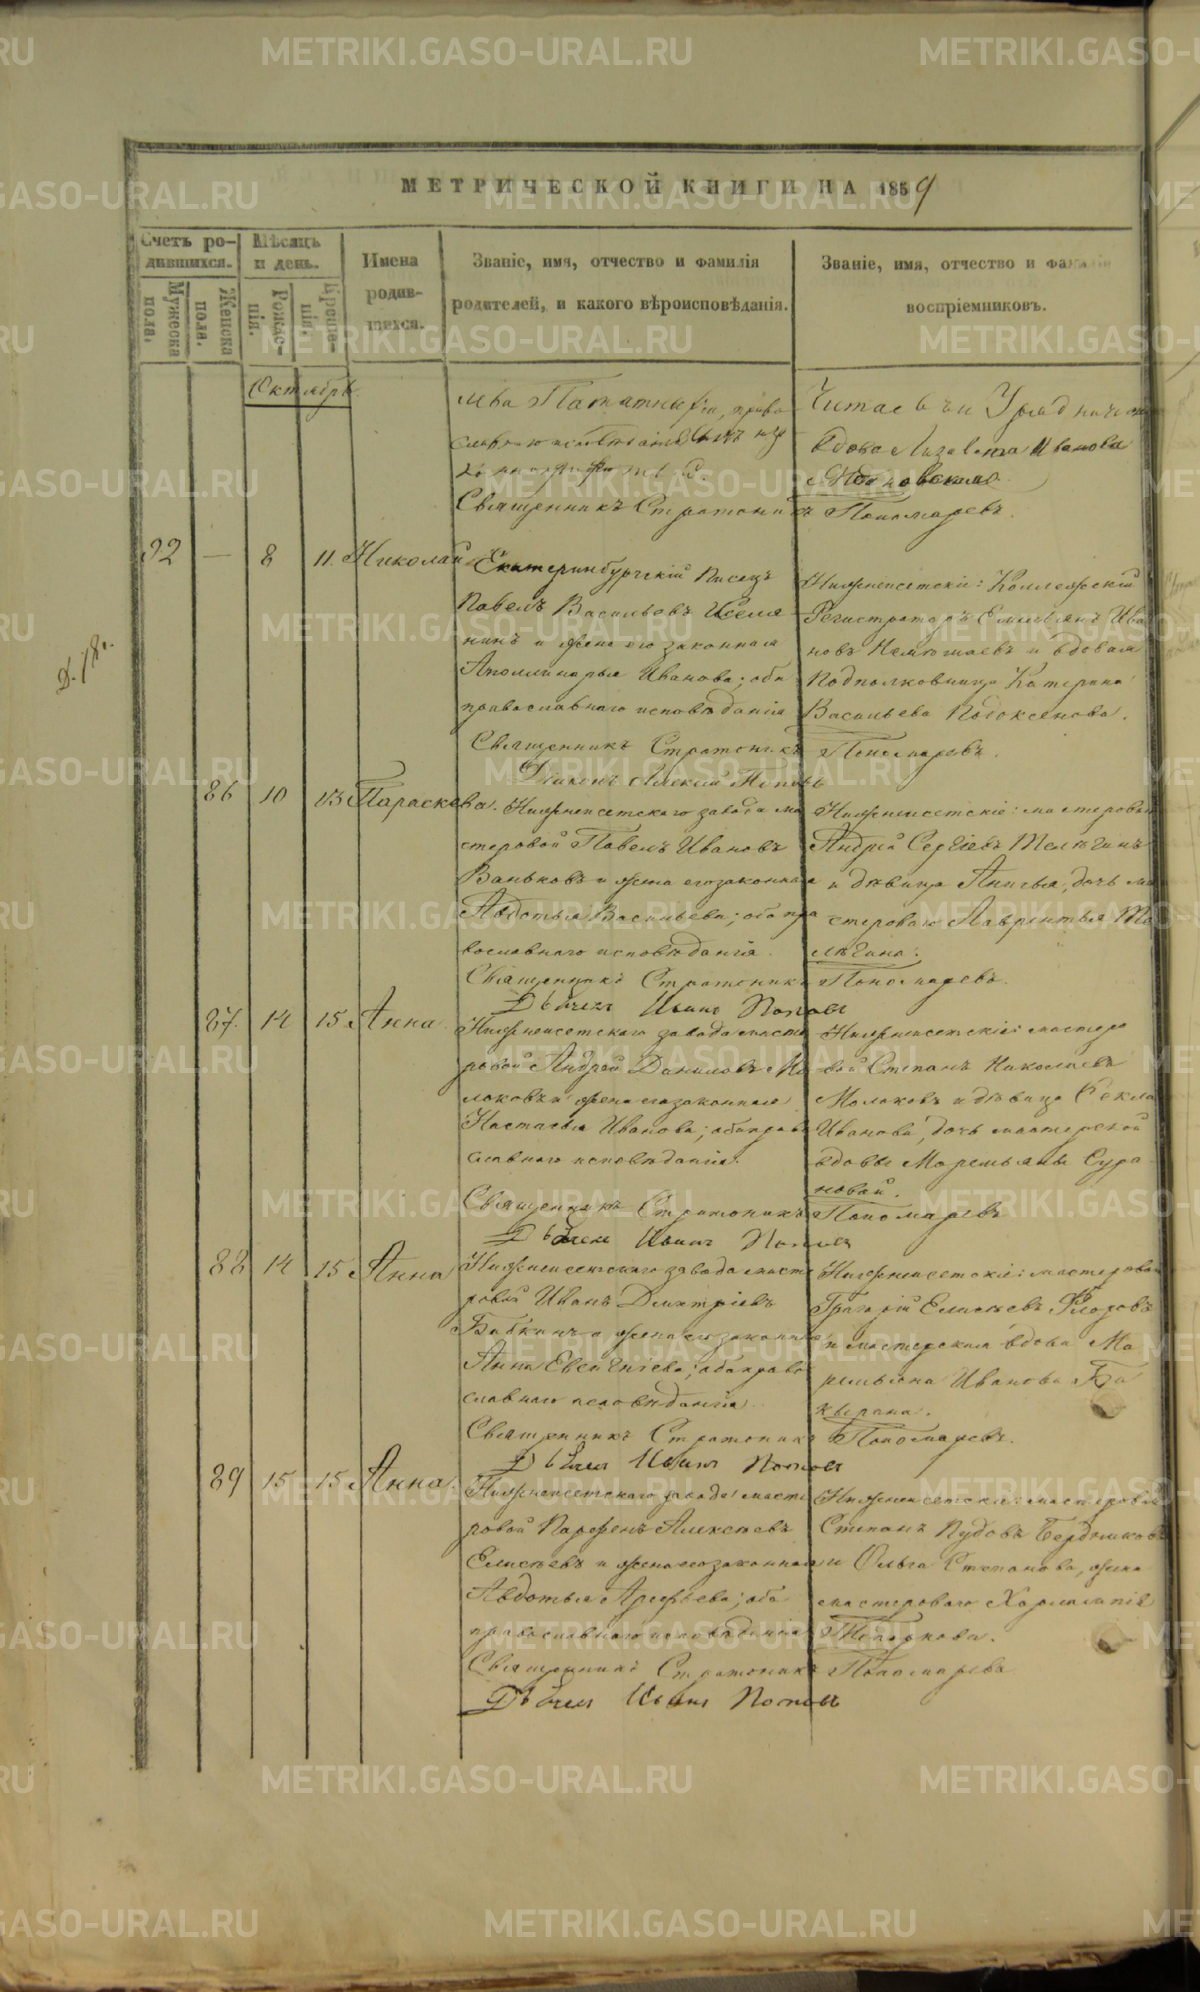 МЕТРИЧЕСКОЙ КНИГИ НА 1859
Счетъ родившихся.
Мужеска пола.
Женска пола.
Мѣсяцъ и день.
Рожденія.
Крещенія.
Имена родившихся.
Званіе, имя, отчество и фамилія
родителей, и какого вѣроисповѣданія.
Званіе, имя, отчество и фамилія
воспріемниковъ.
Октябрь
вдова Иванова
Священникъ Стратоникъ Пономаревъ.
92 — 8 11. Николай
Екатеринбургскій Писецъ
Павелъ Васильевъ
и жена его законная
Аполлинарья Иванова; оба
православнаго исповѣданія
Нижнеисетскіе: Коллежскій
Регистраторъ Ива
новъ и вдовая
Подполковница Катерина
Васильева
Священникъ Стратоникъ Пономаревъ.
Діаконъ Алексій Поповъ
Д. 18.
86 10 13 Параскева.
Нижнеисетскаго завода ма
стеровой Павелъ Ивановъ
Ваньковъ и жена его законная
Авдотья Васильева; оба пра
вославнаго исповѣданія.
Нижнеисетскіе: мастеровый
Андрей Сергіевъ Телѣгинъ
и дѣвица дочь ма
стероваго Лаврентья Те
лѣгина.
Священникъ Стратоникъ Пономаревъ.
Дьячекъ Иванъ Поповъ
87. 14 15 Анна.
Нижнеисетскаго завода масте
ровой Андрей Даниловъ Мо
локовъ и жена его законная
Настасья Иванова; оба право
славнаго исповѣданія.
Нижнеисетскіе: мастеро
вой Степанъ Николаевъ
Молоковъ и дѣвица Фекла
Иванова, дочь мастерской
вдовы Маремьяны Сура
новой.
Священникъ Стратоникъ Пономаревъ
Дьячекъ Иванъ Поповъ
88 14 15 Анна
Нижнеисетскаго завода масте
ровой Иванъ Дмитріевъ
Бабкинъ и жена его законная
Анна Евгеніева; оба право
славнаго исповѣданія.
Нижнеисетскіе: мастеровой
Григорій Елисѣевъ Флоровъ
и мастерская вдова Ма
ремьяна Иванова
Священникъ Стратоникъ Пономаревъ.
Дьячекъ Иванъ Поповъ
89 15 15 Анна.
Нижнеисетскаго завода масте
ровой Парфенъ Алексѣевъ
Елисѣевъ и жена его законная
Авдотья Арефьева; оба
православнаго исповѣданія
Нижнеисетскіе: мастеровый
Степанъ Пудовъ Бердниковъ
и Ольга Степанова, жена
мастероваго Харлампія
Топоркова.
Священникъ Стратоникъ Пономаревъ
Дьячекъ Иванъ Поповъ
METRIKI.GASO-URAL.RU